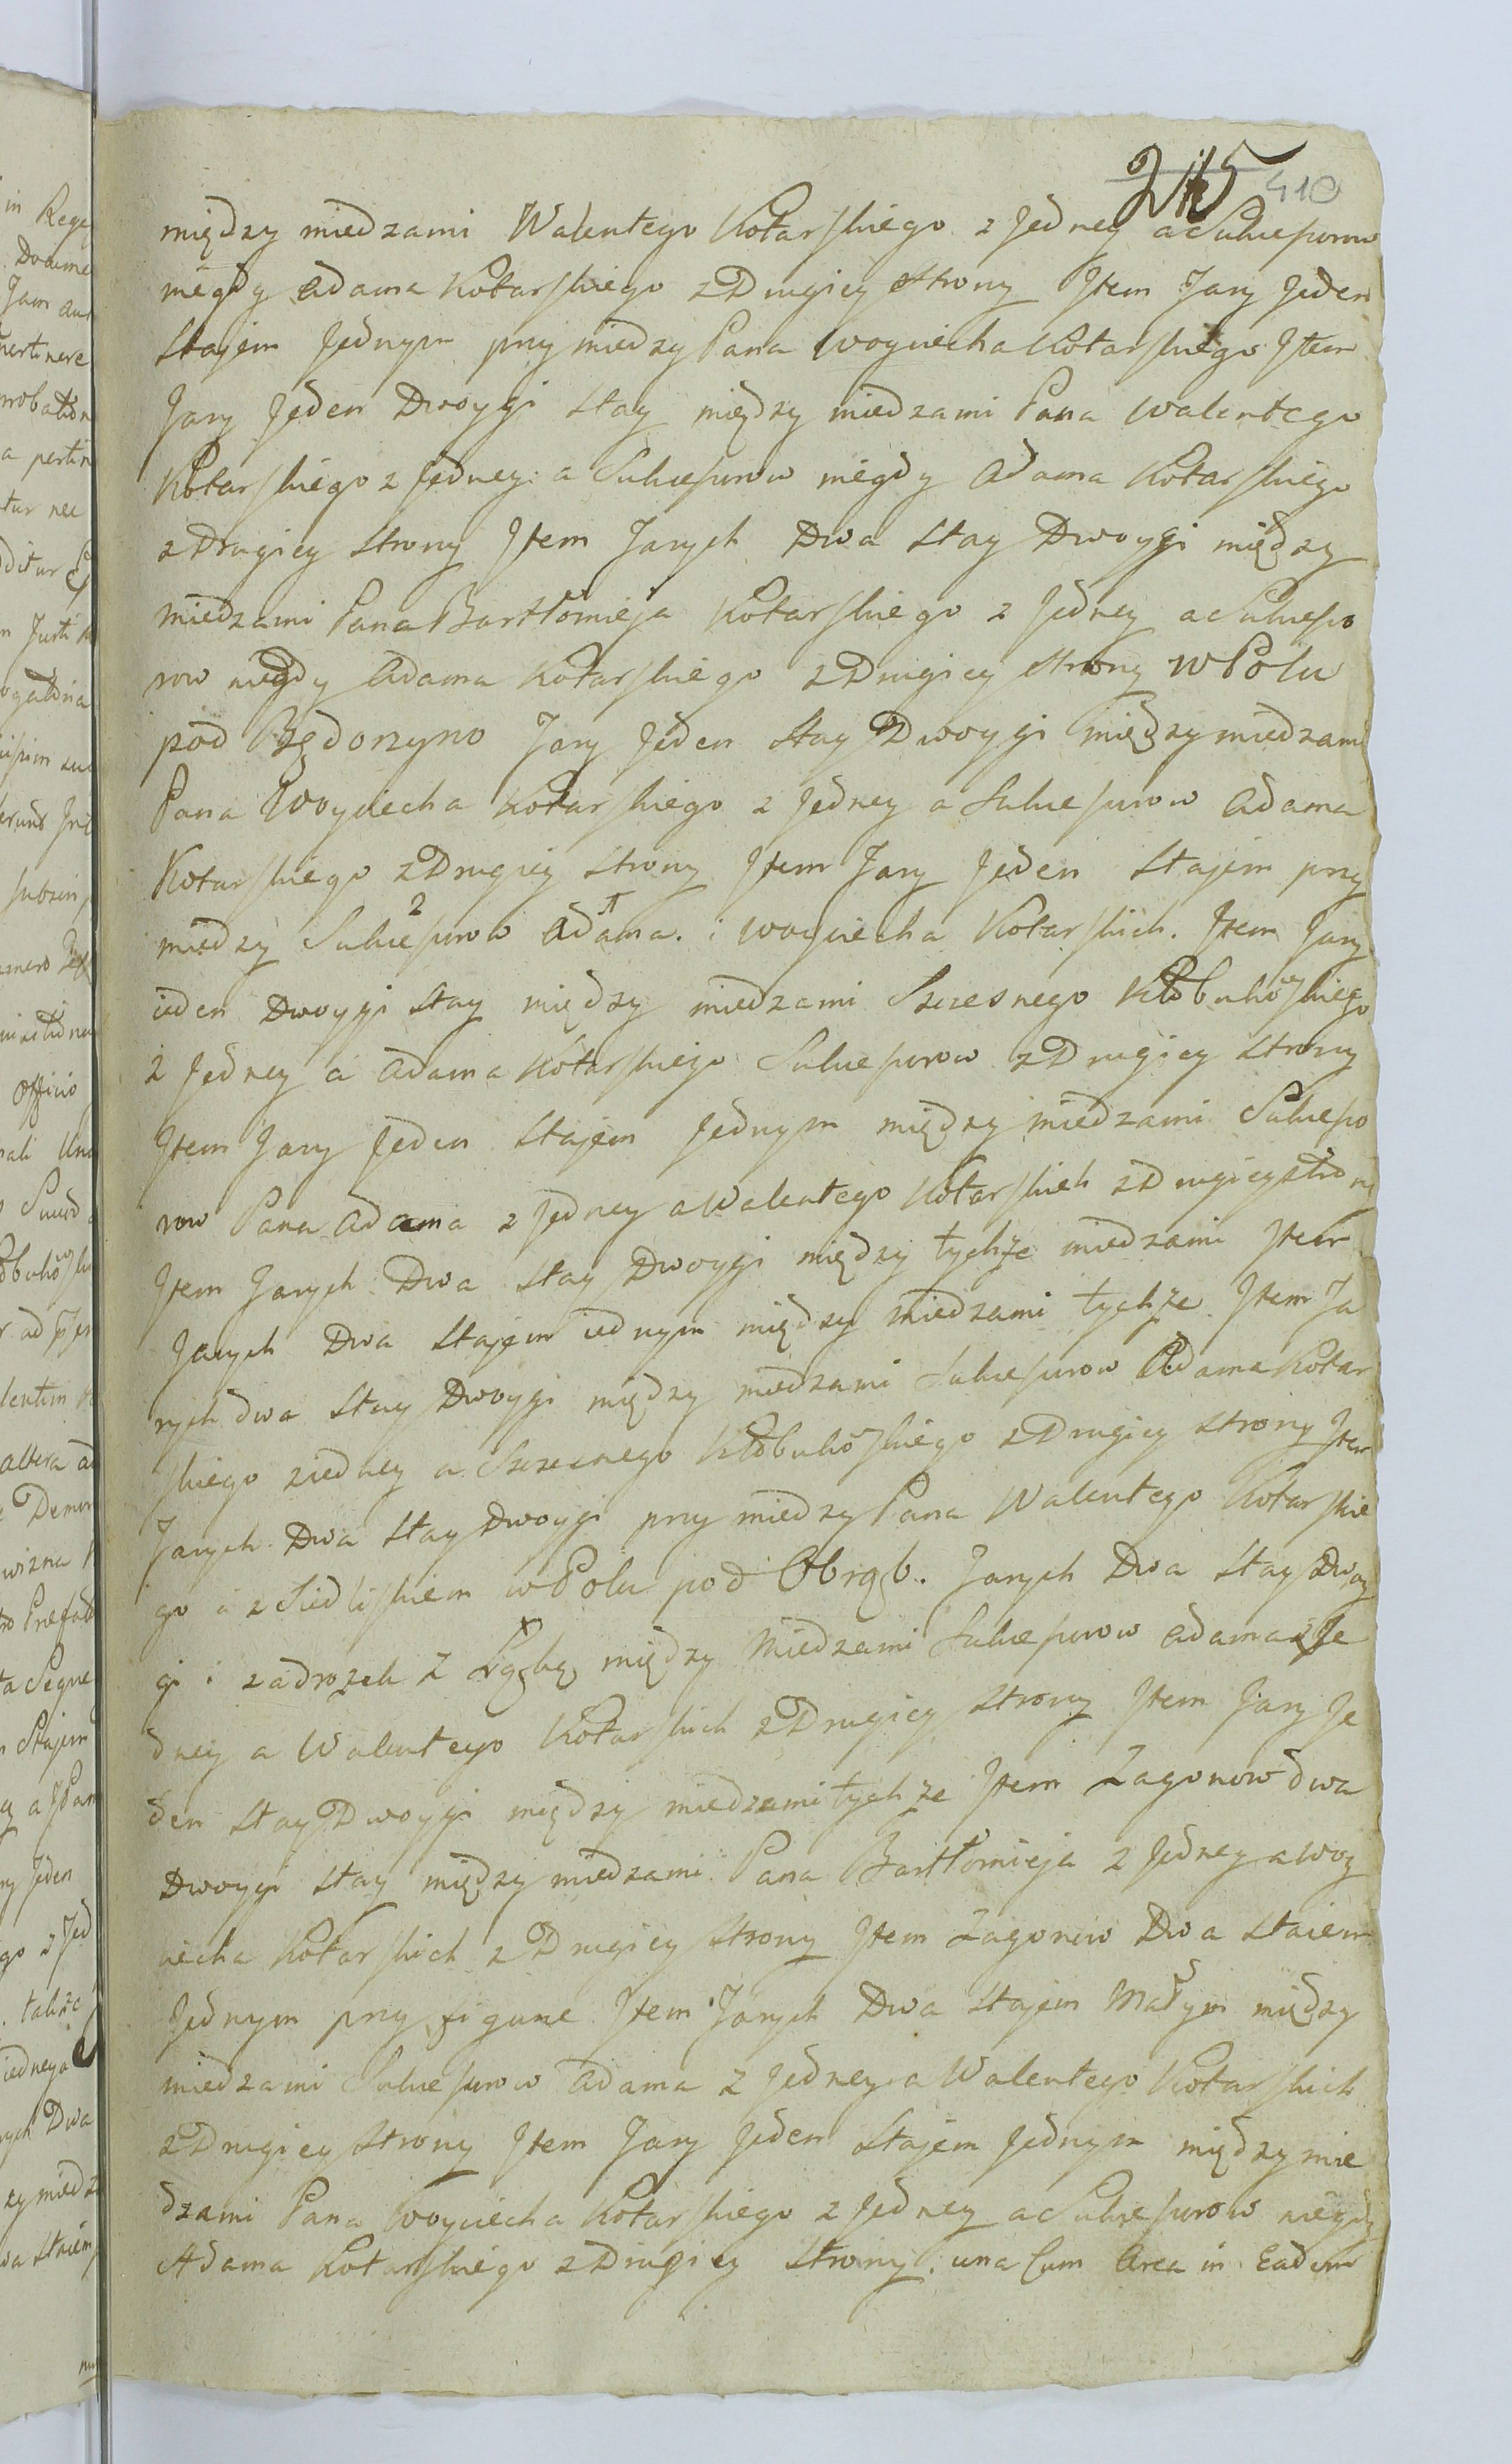 215 410
między miedzami Walentego Kotarskiego z Jedney a Sukcessorow
niegdy Adama Kotarskiego z Drugiey Strony Item Jary Jeden
Stajem Jednym przy miedzy Pana Woyciecha Kotarskiego Item
Jary Jeden Dwoygi Stay między miedzami Pana Walentego
Kotarskiego z Jedney a Sukcessorow niegdy Adama Kotarskiego
z Drugiey Strony Item Jarych Dwa Stay Dwoygi między
miedzami Pana Bartłomieja Kotarskiego z Jedney a Sukcesso
row niegdy Adama Kotarskiego z Drugiey Strony w Polu
pod Jary Jeden Stay Dwoygi między miedzami
Pana Woyciecha Kotarskiego z Jedney a Sukcessorow Adama
Kotarskiego z Drugiey Strony Item Jary Jeden Stajem przy
miedzy Sukcessorow Adama i Woyciecha Kotarskich. Item Jary
ieden Dwoygi Stay między miedzami Szczesnego Kłobukowskiego
z Jedney a Adama Kotarskiego Sukcessorow z Drugiey Strony
Item Jary Jeden Stajem Jednym między miedzami Sukcesso
row Pana Adama z Jedney a Walentego Kotarskich z Drugiey Strony
Item Jarych Dwa Stay Dwoygi między tychże miedzami Item
Jarych Dwa Stajem iednym między miedzami tychże Item Ja
rych dwa Stay Dwoygi między miedzami Sukcessorow Adama Kotar
skiego ziedney a Szczesnego Kłobukowskiego z Drugiey Strony Item
Jarych Dwa Stay Dwoygi przy miedzy Pana Walentego Kotarskie
go i z Siedliskiem w Polu pod Obrąb. Jarych Dwa Stay Dwoy
gi i zadrożek z Łąką między Miedzami Sukcessorow Adama z Je
dney a Walentego Kotarskich z Drugiey Strony Item Jary Je
den Stay Dwoygi między miedzami tychże Item Zagonow dwa
Dwoygi Stay między miedzami Pana Bartłomieja z Jedney a Woy
ciecha Kotarskich z Drugiey Strony Item Zagonow Dwa Staiem
Jednym przy figurze Item Jarych Dwa Stajem Małym między
miedzami Sukcessorow Adama z Jedney a Walentego Kotarskich
z Drugiey Strony Item Jary Jeden Stajem Jednym między mie
dzami Pana Woyciecha Kotarskiego z Jedney a Sukcessorow niegdy
Adama Kotarskiego z Drugiey Strony. una Cum Area in Eadem